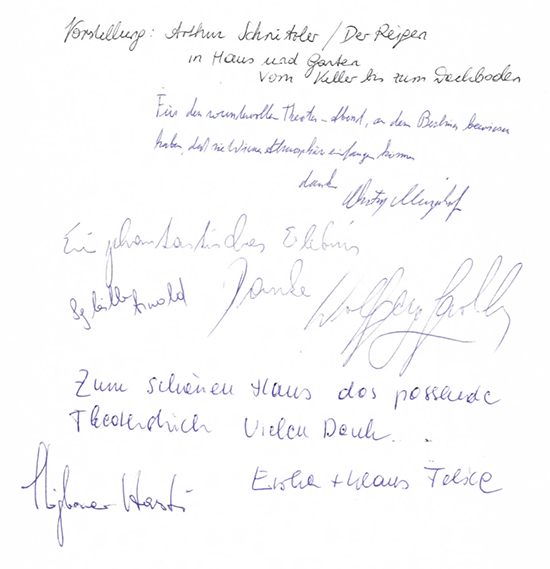 Vorstellung: Arthur Schnitzler / Der Reigen
in Haus und Garten
vom Keller bis zum Dachboden
Für den wundervollen Theater-Abend, an dem Berliner bewiesen
haben, daß sie Wiener Atmosphäre einfangen können
danke
Ein phantastisches Erlebnis
Danke Wolfgang
Sybille Arnold
Zum schönen Haus das passende
Theaterstück Vielen Dank . .
Klaus Felske